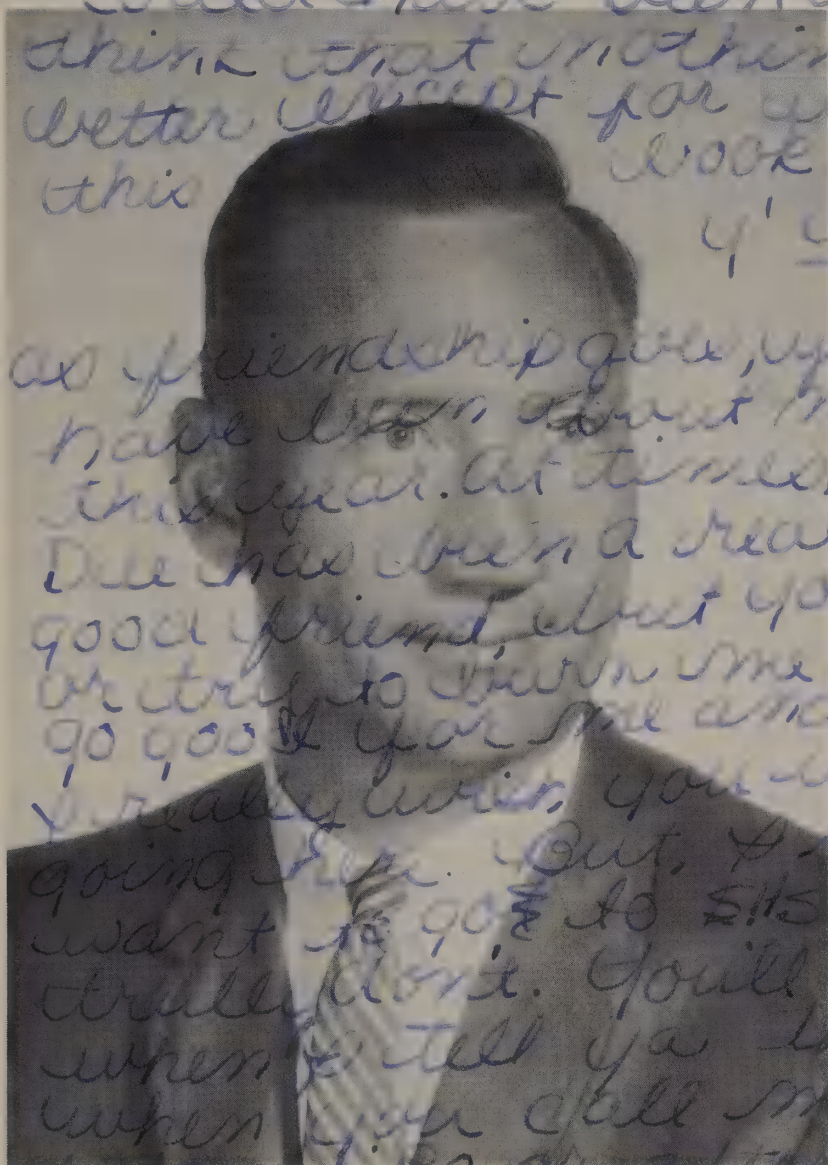 think that nothin
better except for
this book
y'
as friendship goes, 
have been about m
this year. At times
Dee has been a rea
good friend, but yo
or try to burn me
go good for me and
I really wish you
going here. But, I
want to go to SHS
trully don't. You'll
when I tell ya
when you call m